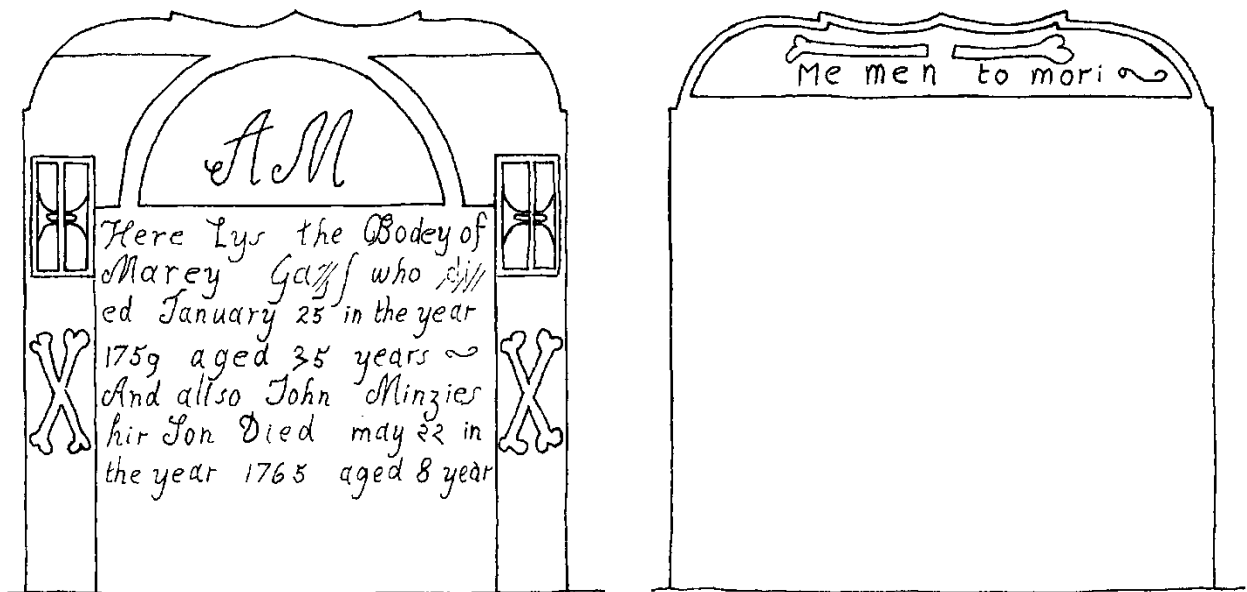 AM
Here Lys the Bodey of
Marey who
ed January 25 in the year
1759 aged 35 years
And allso John Minzies
hir Son Died may 22 in
the year 1765 aged 8 year
Me men to mori